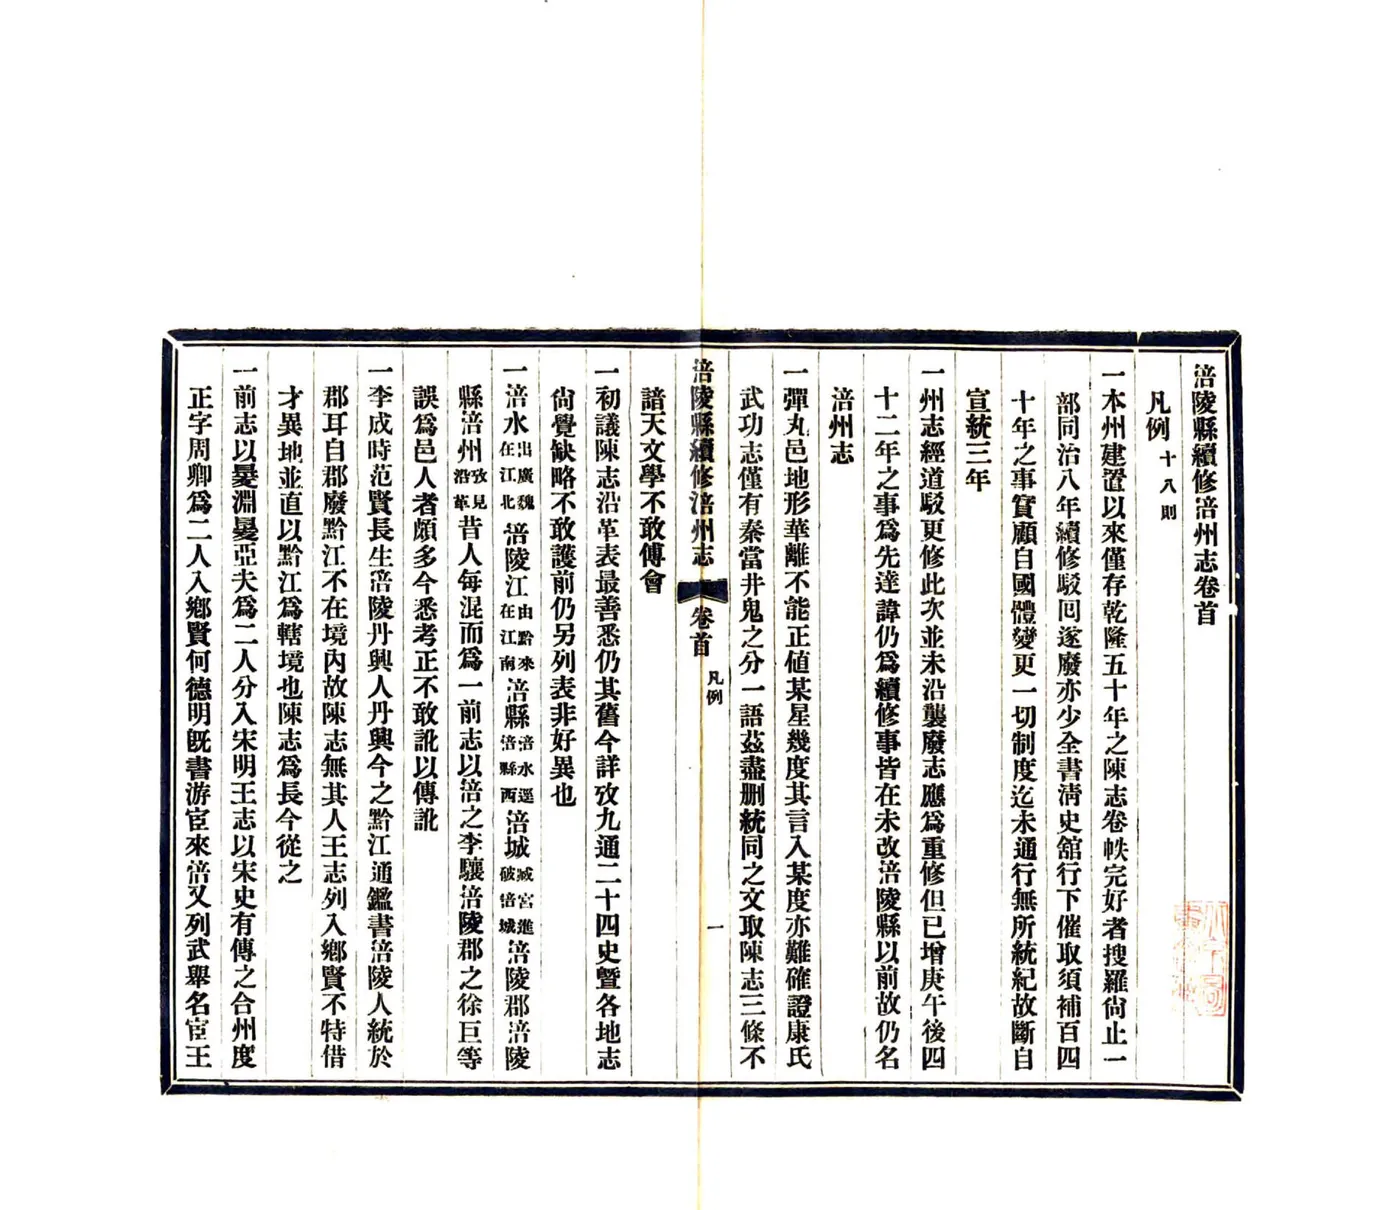 涪陵縣續修涪州志卷首
凡例十八則
一本州建置以來僅存乾隆五十年之陳志卷帙完好者搜羅尙止一
部同治八年續修駁囘遂廢亦少全書淸史舘行下催取須補百四
十年之事實顧自國體變更一切制度迄未通行無所統紀故斷自
宣統三年
一州志經道駁更修此次並未沿襲廢志應爲重修但已增庚午後四
十二年之事爲先達諱仍爲續修事皆在未改涪陵縣以前故仍名
涪州志
一彈丸邑地形華離不能正値某星幾度其言入某度亦難確證康氏
武功志僅有秦當井鬼之分一語茲盡删統同之文取陳志三條不
涪陵縣續修涪州志 卷首 凡例 一
諳天文學不敢傅會
一初議陳志沿革表最善悉仍其舊今詳攷九通二十四史曁各地志
尙覺缺略不敢護前仍另列表非好異也
一涪水出廣魏在江北涪陵江由黔來在江南涪縣涪水逕涪縣西涪城臧宮進破涪城涪陵郡涪陵
縣涪州攷見沿革昔人每混而爲一前志以涪之李驤涪陵郡之徐巨等
誤爲邑人者頗多今悉考正不敢訛以傳訛
一李成時范賢長生涪陵丹興人丹興今之黔江通鑑書涪陵人統於
郡耳自郡廢黔江不在境內故陳志無其人王志列入鄉賢不特借
才異地並直以黔江爲轄境也陳志爲長今從之
一前志以㬊淵㬊亞夫爲二人分入宋明王志以宋史有傳之合州度
正字周卿爲二人入鄉賢何德明旣書游宦來涪又列武舉名宦王